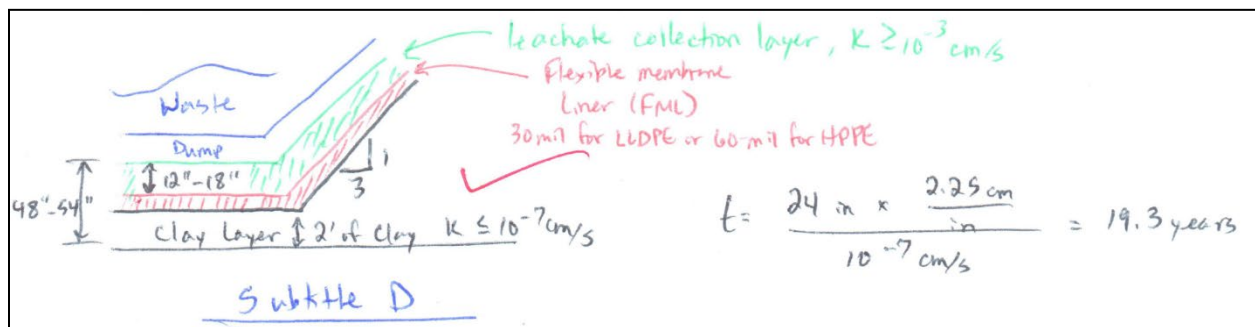 leachate collection layer, K ≥ 10⁻³ cm/s
Flexible membrane
Liner (FML)
30 mil for LLDPE or 60-mil for HPPE
Waste
Dump
12"-18"
1
3
48"-54"
Clay Layer 2' of Clay K ≤ 10⁻⁷ cm/s
t = 24 in × 2.25 cm / in / 10⁻⁷ cm/s = 19.3 years
Subtitle D